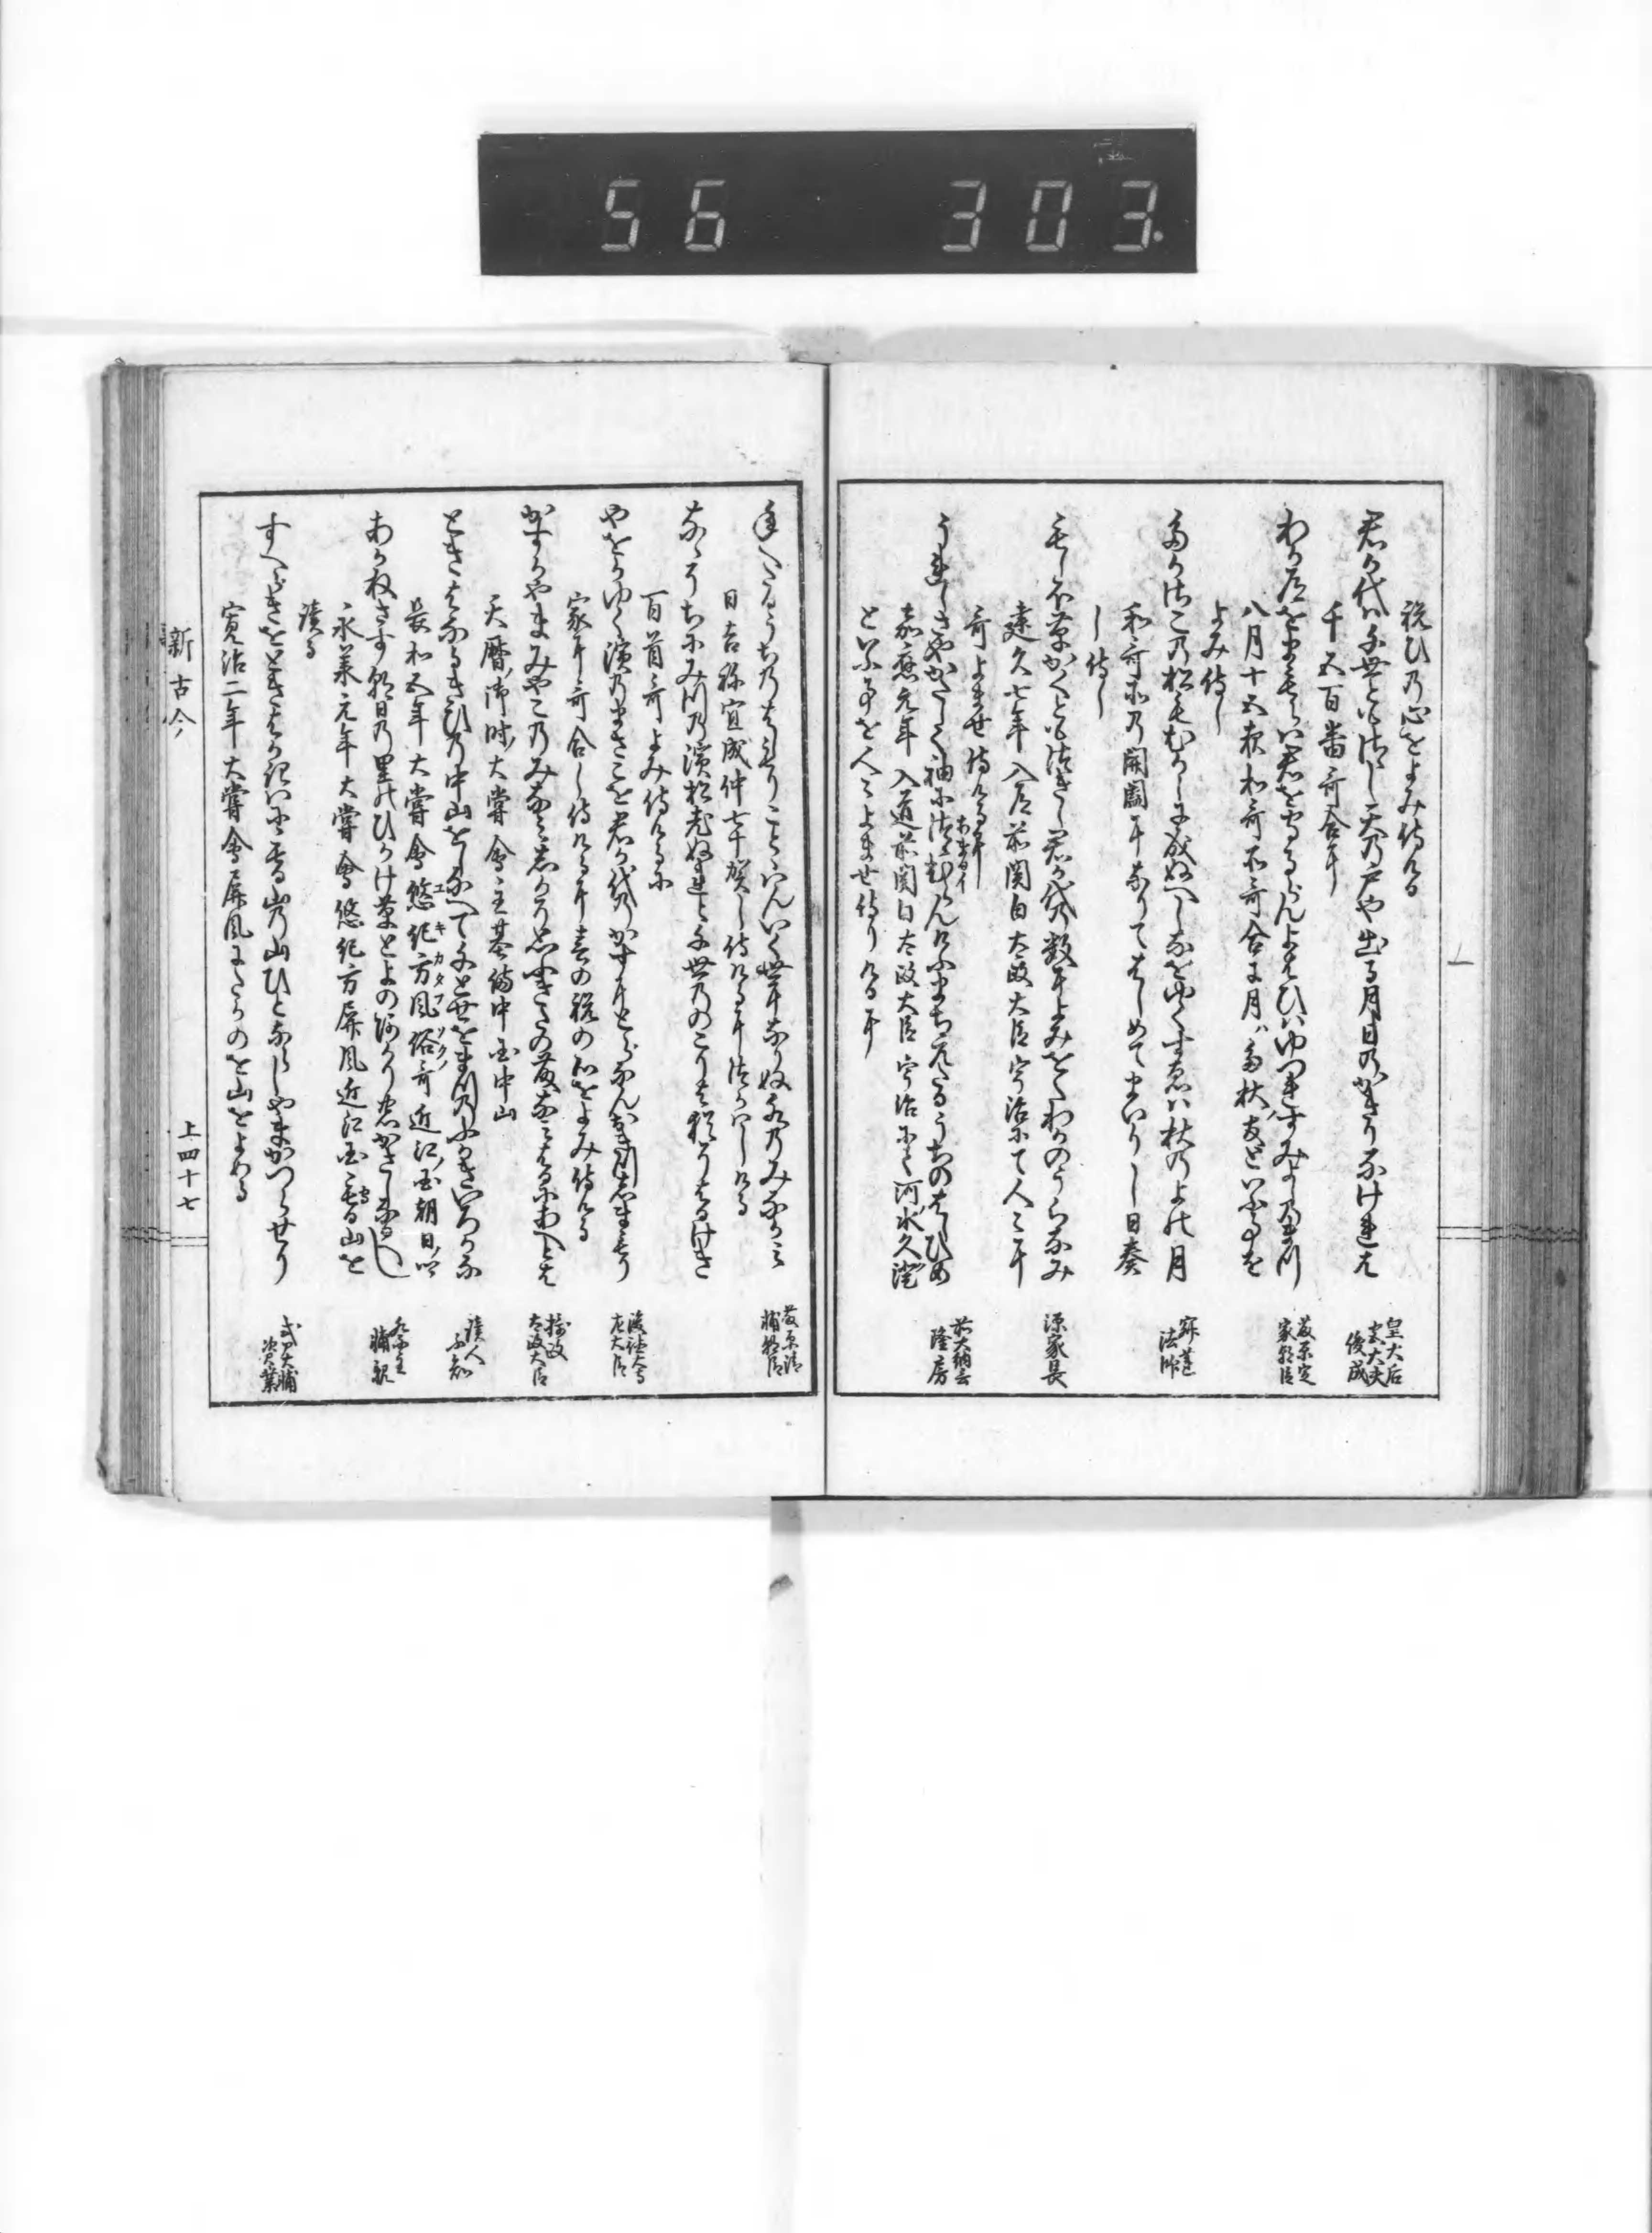 56 303.
祝ひの心をよみ侍ける
君か代は千世ともさゝし天の戸や出る月日のかきりなけれは
皇太后宮大夫俊成
千五百番哥合に
わか道をまもらは君をまもるらんよはひはゆつれすみよしの松
藤原定家朝臣
八月十五夜和哥所哥合に月多秋友といふ事を
よみ侍し
たかさこの松もむかしに成ぬへしなをゆくすゑは秋のよの月
寂蓮法師
和哥所の開闔になりてはしめてまいりし日奏
し侍し
もしほ草かくともつきし君か代の数によみをくわかのうらなみ
源家長
建久七年入道前関白太政大臣宇治にて人々に
哥よませ侍ける に
うれしさやかたしく袖につゝむらんけふまちえたるうちのはしひめ
あまるイ
前大納言隆房
嘉應元年入道前関白太政大臣宇治にて河水久澄
といふ事を人々よませ侍りけるに
年へたるうちのはしもりことゝはんいく世になりぬ水のみなかみ
藤原清輔朝臣
日吉祢宜成仲七十賀し侍けるにつかはしける
なゝそちにみつの濱松老ぬれと千世の のこりは猶そはるけき
百首哥よみ侍けるに
やをかゆく濱のまさこを君か代のかすにとらなんおきつしまもり
後徳大寺左大臣
家に哥合し侍けるに春の祝の心をよみ侍ける
かすかやまみやこのみなみしかそ思ふきたの藤なみはるにあへとは
摂政太政大臣
天暦ノ御時ノ大嘗會主基備中ノ国中山
ときはなるきひの中山をしなへて千とせをまつのふかきいろかな
讀人不知
長和五年大嘗會悠紀方風俗哥近江ノ国朝日ノ里
エキカタフソクノ
あかねさす朝日の里のひかけ草とよのあかりのかさしなるへし
祭主輔親
永承元年大嘗會悠紀方屏風近江国もる山を
讀る
すへらきをときはかきはにもる山の山ひとならしやまかつらせり
式部大輔資業
寛治二年大嘗會屏風にたかのを山をよめる
新古今ノ
上四十七